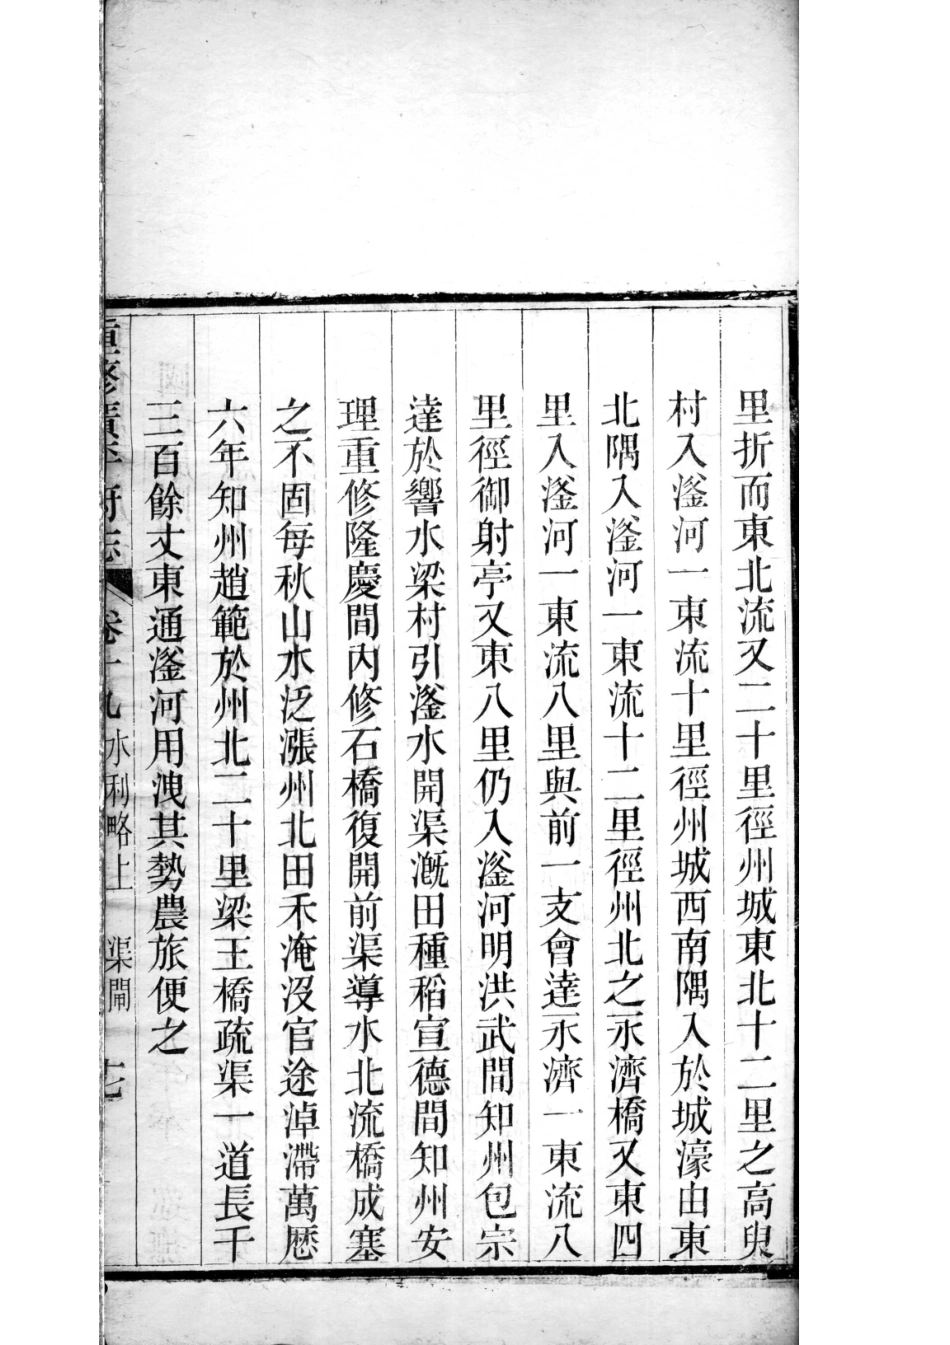 里折而東北流又二十里徑州城東北十二里之高臾
村入滏河一東流十里徑州城西南隅入於城濠由東
北隅入滏河一東流十二里徑州北之永濟橋又東四
里入滏河一東流八里與前一支會達永濟一東流八
里徑御射亭又東八里仍入滏河明洪武間知州包宗
達於響水梁村引滏水開渠漑田種稻宣德間知州安
理重修隆慶間內修石橋復開前渠導水北流橋成塞
之不固每秋山水泛漲州北田禾淹沒官途淖滯萬厯
六年知州趙範於州北二十里梁王橋疏渠一道長千
三百餘丈東通滏河用洩其勢農旅便之
重修廣平府志 卷十九 水利略上 渠閘 十七